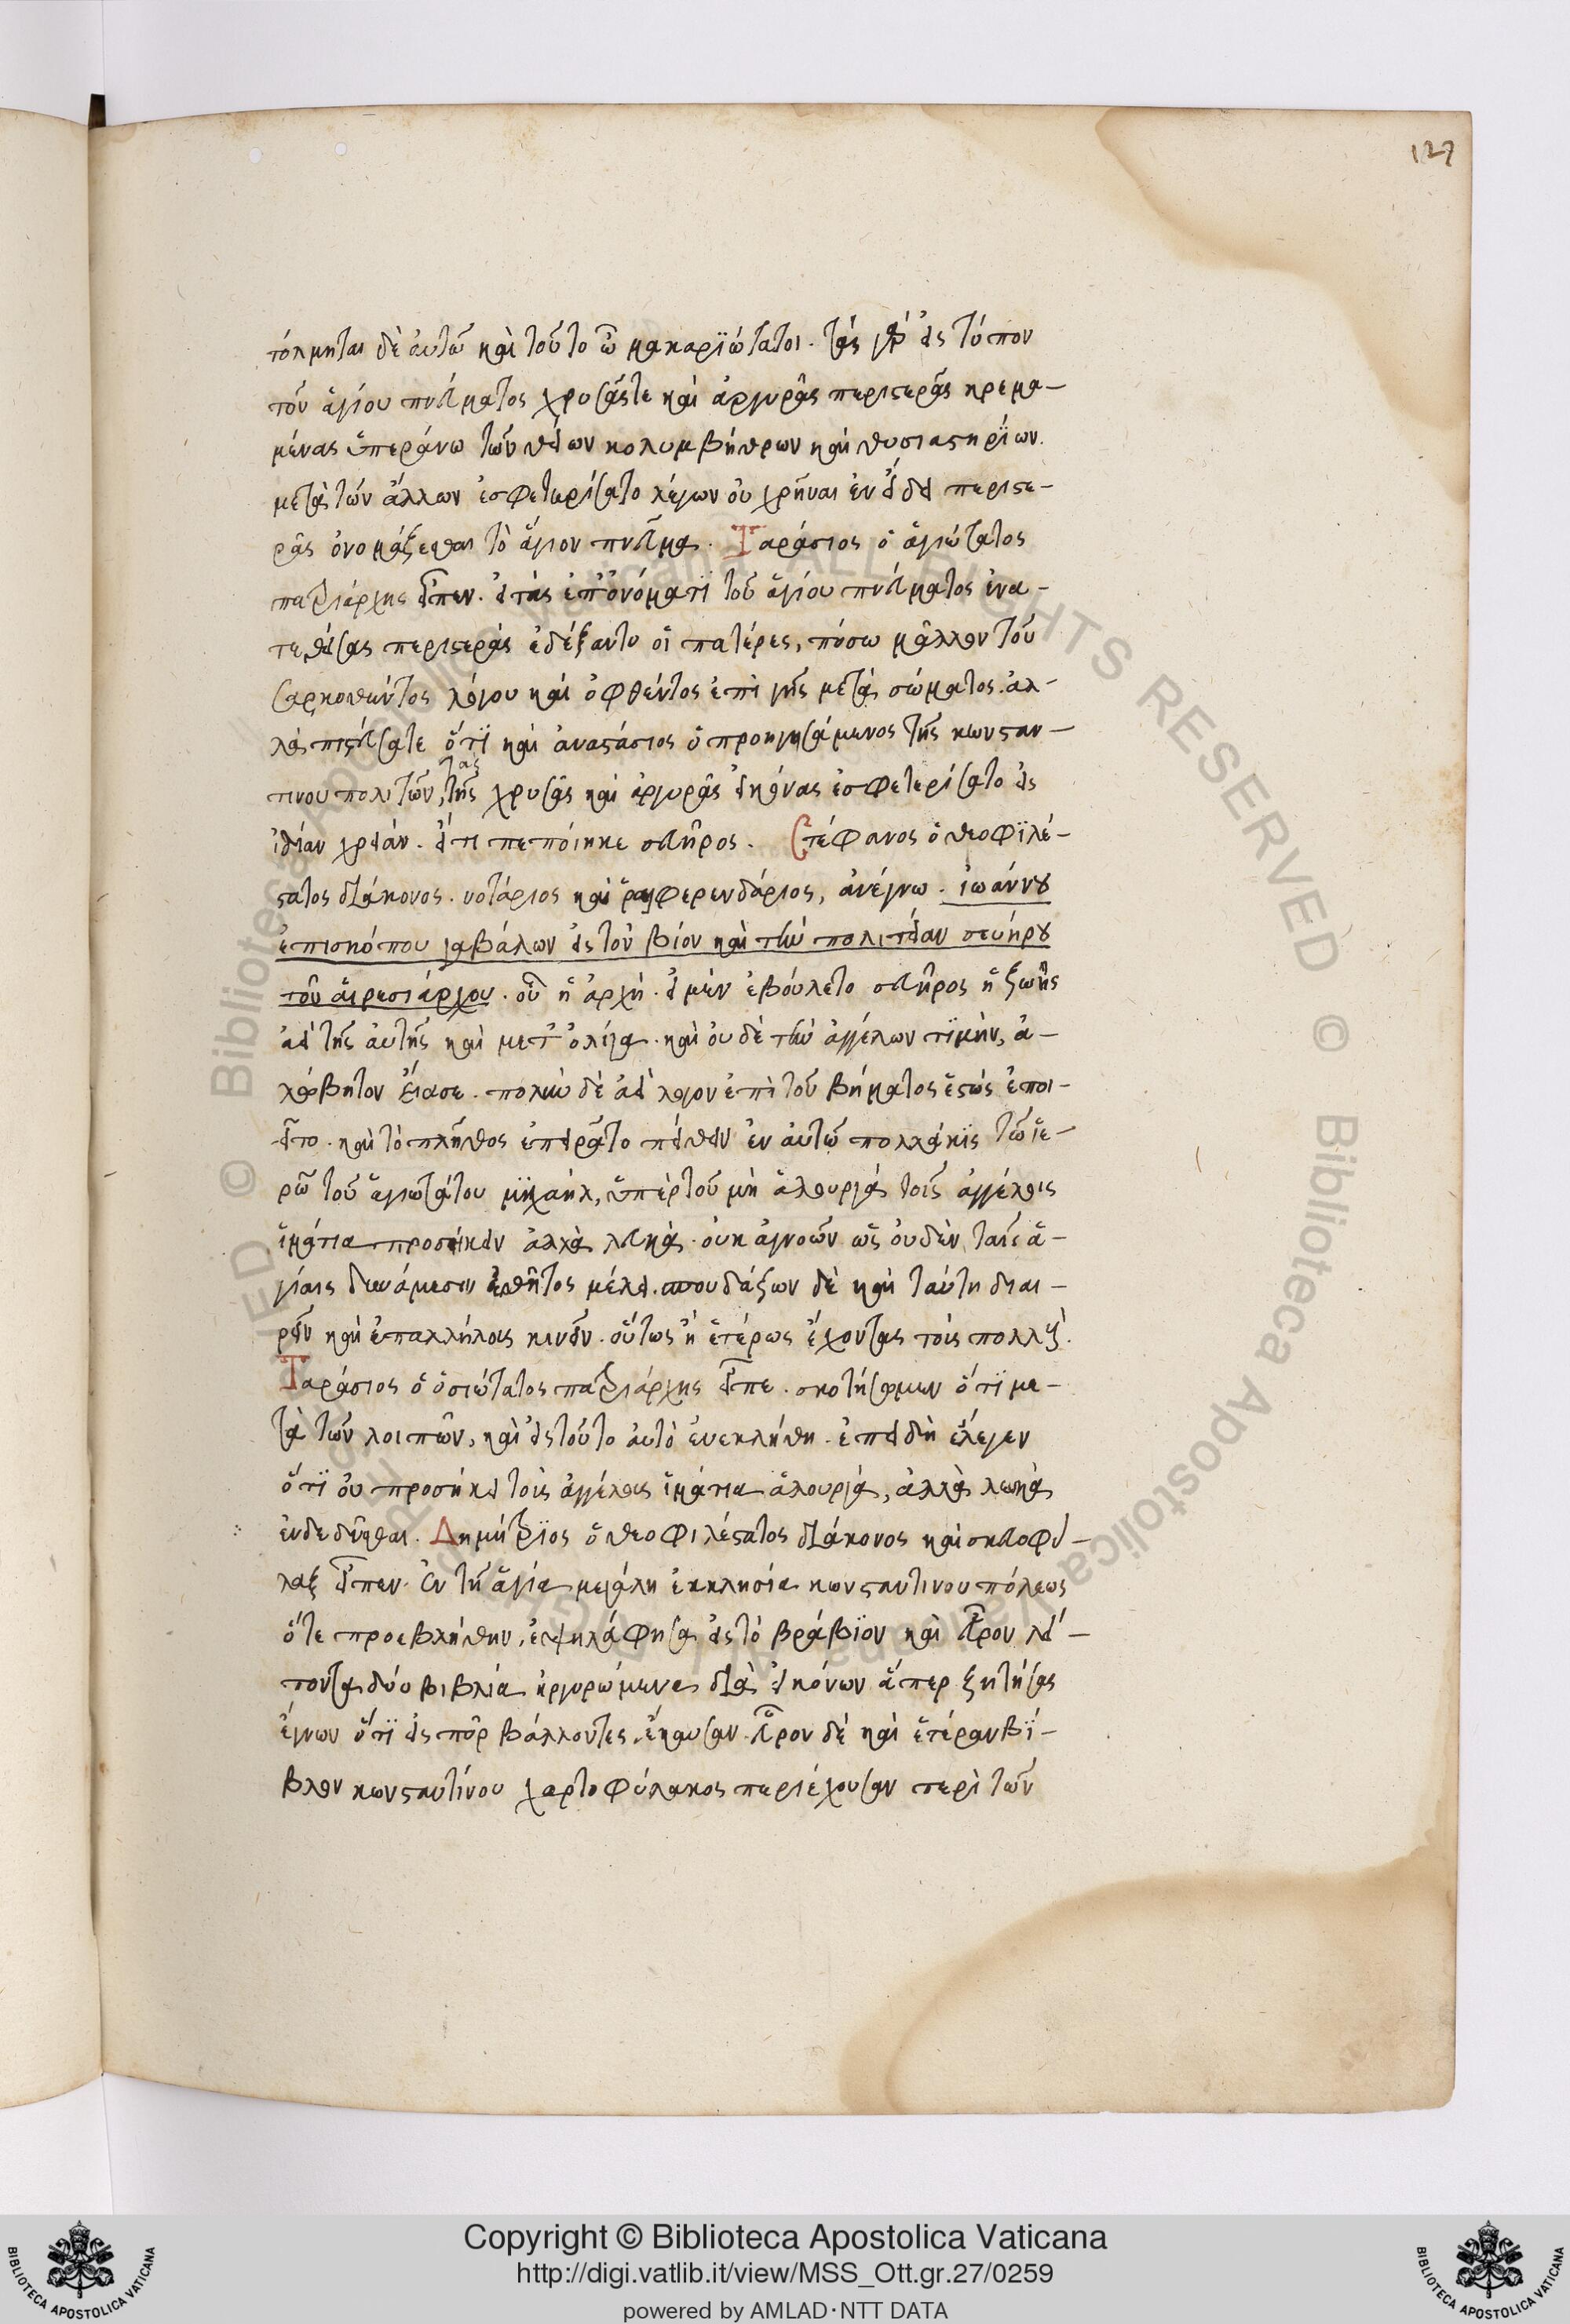 127
τόλμηται δὲ ἀυτῶ καὶ τοῦτο ὦ μακαρϊώτατοι. τὰς γὰρ εἰς τύπον
τοῦ ἁγίου πνεύματος χρυσᾶς τε καὶ ἀργυρᾶς περιστερᾶς κρεμα-
μένας ὑπεράνω τῶν θείων κολυμβήθρων καὶ θυσιαστηρίων.
μετὰ τῶν ἄλλων ἐσφετερίσατο λέγων οὐ χρῆναι ἐν εἴδει περιστε-
ρᾶς ὀνομάζεσθαι τὸ ἅγιον πνεῦμα. Ταράσιος ὁ ἁγιώτατος
πατριάρχης εἶπεν. εἰ τὰς ἐπ' ὀνόματϊ τοῦ ἁγίου πνεύματος ἀνα-
τεθείσας περιστερὰς ἐδέξαντο οἱ πατέρες, πόσω μᾶλλον τοῦ
σαρκωθέντος λόγου καὶ ὀφθέντος ἐπὶ γῆς μετὰ σώματος. ἀλ-
λὰ πιστεύσατε ὅτϊ καὶ ἀναστάσιος ὁ προηγησάμενος τῆς κωνσταν-
τινουπολιτῶν, τῆς τὰς χρυσᾶς καὶ ἀργυρᾶς εἰκόνας ἐσφετερίσατο εἰς
ἰδίαν χρείαν. εἴ τι πεποίηκε σευῆρος. Στέφανος ὁ θεοφϊλέ-
στατος διάκονος. νοτάριος καὶ ῥαιφερενδάριος, ἀνέγνω. ἰωάννου
ἐπισκόπου γαβάλων εἰς τὸν βίον καὶ τὴν πολιτείαν σευήρου
τοῦ αἱρεσιάρχου. οὗ ἡ ἀρχὴ. εἰ μὲν ἐβούλετο σευῆρος ἡ ζωῆς
ἀεὶ τῆς ἀυτῆς καὶ μετ' ὀλίγα. καὶ οὐδὲ τὴν ἀγγέλων τϊμὴν, ἀ-
λώβητον εἴασε. πολὺν δὲ ἀεὶ λόγον ἐπὶ τοῦ βήματος ἑστὼς ἐποι-
εῖτο. καὶ τὸ πλῆθος ἐπειρᾶτο πείθειν ἐν ἀυτῶ πολλάκϊς τῶ ἱε-
ρῶ τοῦ ἁγιωτάτου μϊχαὴλ, ὑπὲρ τοῦ μὴ ἁλουργὰ τοῖς ἀγγέλοις
ἱμάτια προσήκειν ἀλλὰ λευκὰ. οὐκ ἀγνοῶν ὡς οὐδὲν ταῖς ἁ-
γίαις δυνάμεσιν ἐσθῆτος μέλει. σπουδάζων δὲ καὶ ταύτη διαι-
ρεῖν καὶ ἐπαλλήλοις κινεῖν. οὕτως ἢ ἑτέρως ἔχοντας τοὺς πολλοὺς.
Ταράσιος ὁ ὁσιώτατος πατριάρχης εἶπε. σκοπήσωμεν ὅτϊ με-
τὰ τῶν λοιπῶν, καὶ εἰς τοῦτο ἀυτὸ ἐνεκλήθη. ἐπειδὴ ἔλεγεν
ὅτϊ οὐ προσήκει τοῖς ἀγγέλοις ἱμάτια ἁλουργὰ, ἀλλὰ λευκὰ
ἐνδεδῦσθαι. Δημήτρϊος ὁ θεοφιλέστατος διάκονος καὶ σκευοφύ-
λαξ εἶπεν. ἐν τῆ ἁγία μεγάλη ἐκκλησία κωνσταντινουπόλεως
ὅτε προεβλήθην, ἐψηλάφησα εἰς τὸ βράβϊον καὶ εὗρον λεί-
ποντα δύο βιβλία ἀργυρώμενα διὰ εἰκόνων ἅπερ ζητήσας
ἔγνων ὅτϊ εἰς πῦρ βάλλοντες. ἔκαυσαν. εὗρον δὲ καὶ ἑτέραν βί-
βλον κωνσταντίνου χαρτοφύλακος περιέχουσαν περὶ τῶν
BIBLIOTECA APOSTOLICA VATICANA
Copyright © Biblioteca Apostolica Vaticana
http://digi.vatlib.it/view/MSS_Ott.gr.27/0259
powered by AMLAD·NTT DATA
BIBLIOTECA APOSTOLICA VATICANA